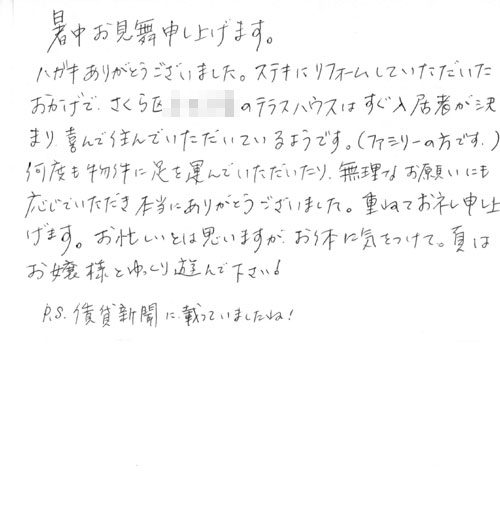 暑中お見舞申し上げます。
ハガキありがとうございました。ステキにリフォームしていただいた
おかげで、さくら区 のテラスハウスはすぐ入居者が決
まり、喜んで住んでいただいているようです。(ファミリーの方です。)
何度も物件に足を運んでいただいたり、無理なお願いにも
応じていただき本当にありがとうございました。重ねてお礼申し上
げます。お忙しいとは思いますが、お体に気をつけて。夏は
お嬢様とゆっくり遊んで下さい!
P.S. 賃貸新聞に載っていましたね!